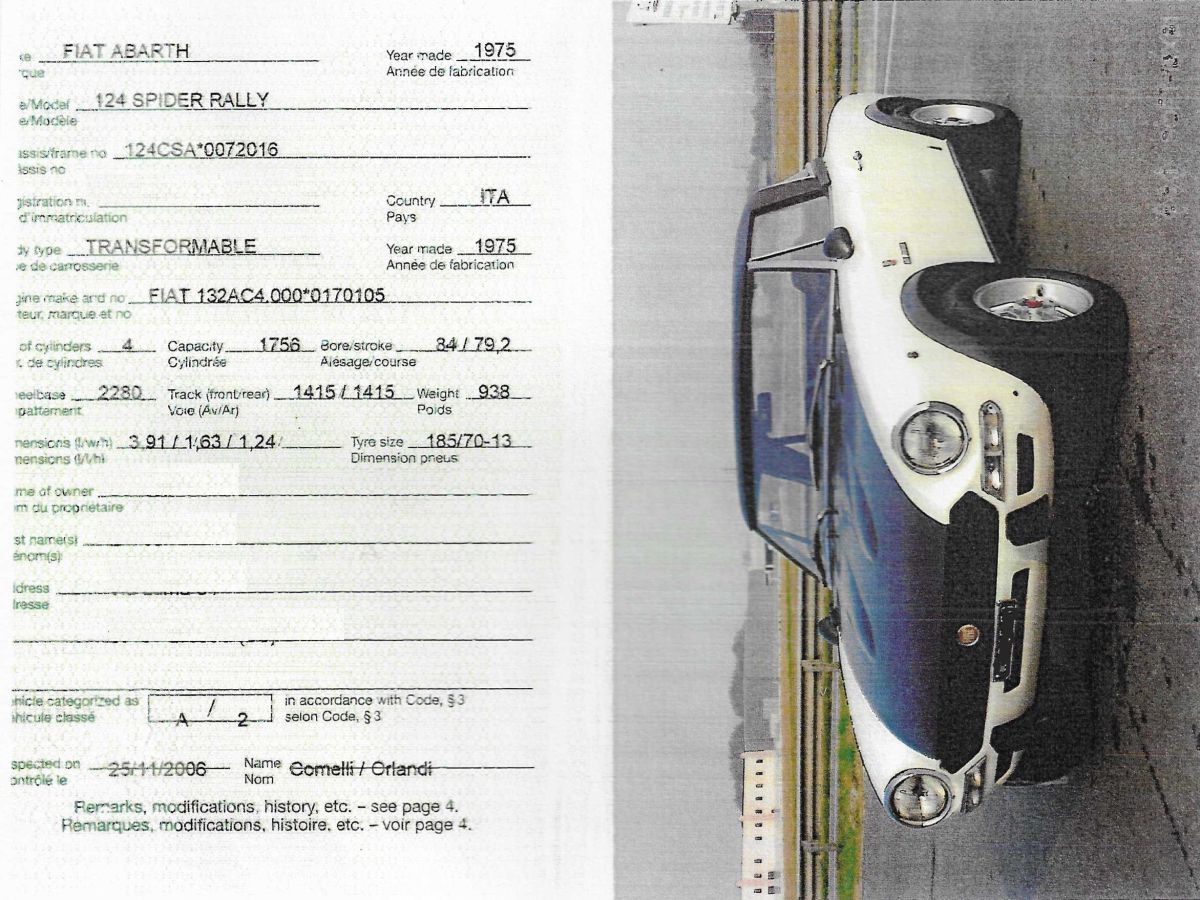 FIAT ABARTH Year made 1975
Année de fabrication
124 SPIDER RALLY
Chassis/frame no 124CSA*0072016
no
Country ITA
d'immatriculation Pays
type TRANSFORMABLE Year made 1975
de carrosserie Année de fabrication
make and no FIAT 132AC4.000*0170105
marque et no
of cylinders 4 Capacity 1756 Bore/stroke 84 / 79,2
de cylindres Cylindrée Alésage/course
2280 Track (front/rear) 1415 / 1415 Weight 938
Voie (Av/Ar) Poids
(l/w/h) 3,91 / 1,63 / 1,24 Tyre size 185/70-13
(l/l/h) Dimension pneus
of owner
du propriétaire
categorized as A / 2 in accordance with Code, § 3
classé selon Code, § 3
on 25/11/2006 Name Comelli / Orlandi
le Nom
Remarks, modifications, history, etc. – see page 4.
Remarques, modifications, histoire, etc. – voir page 4.